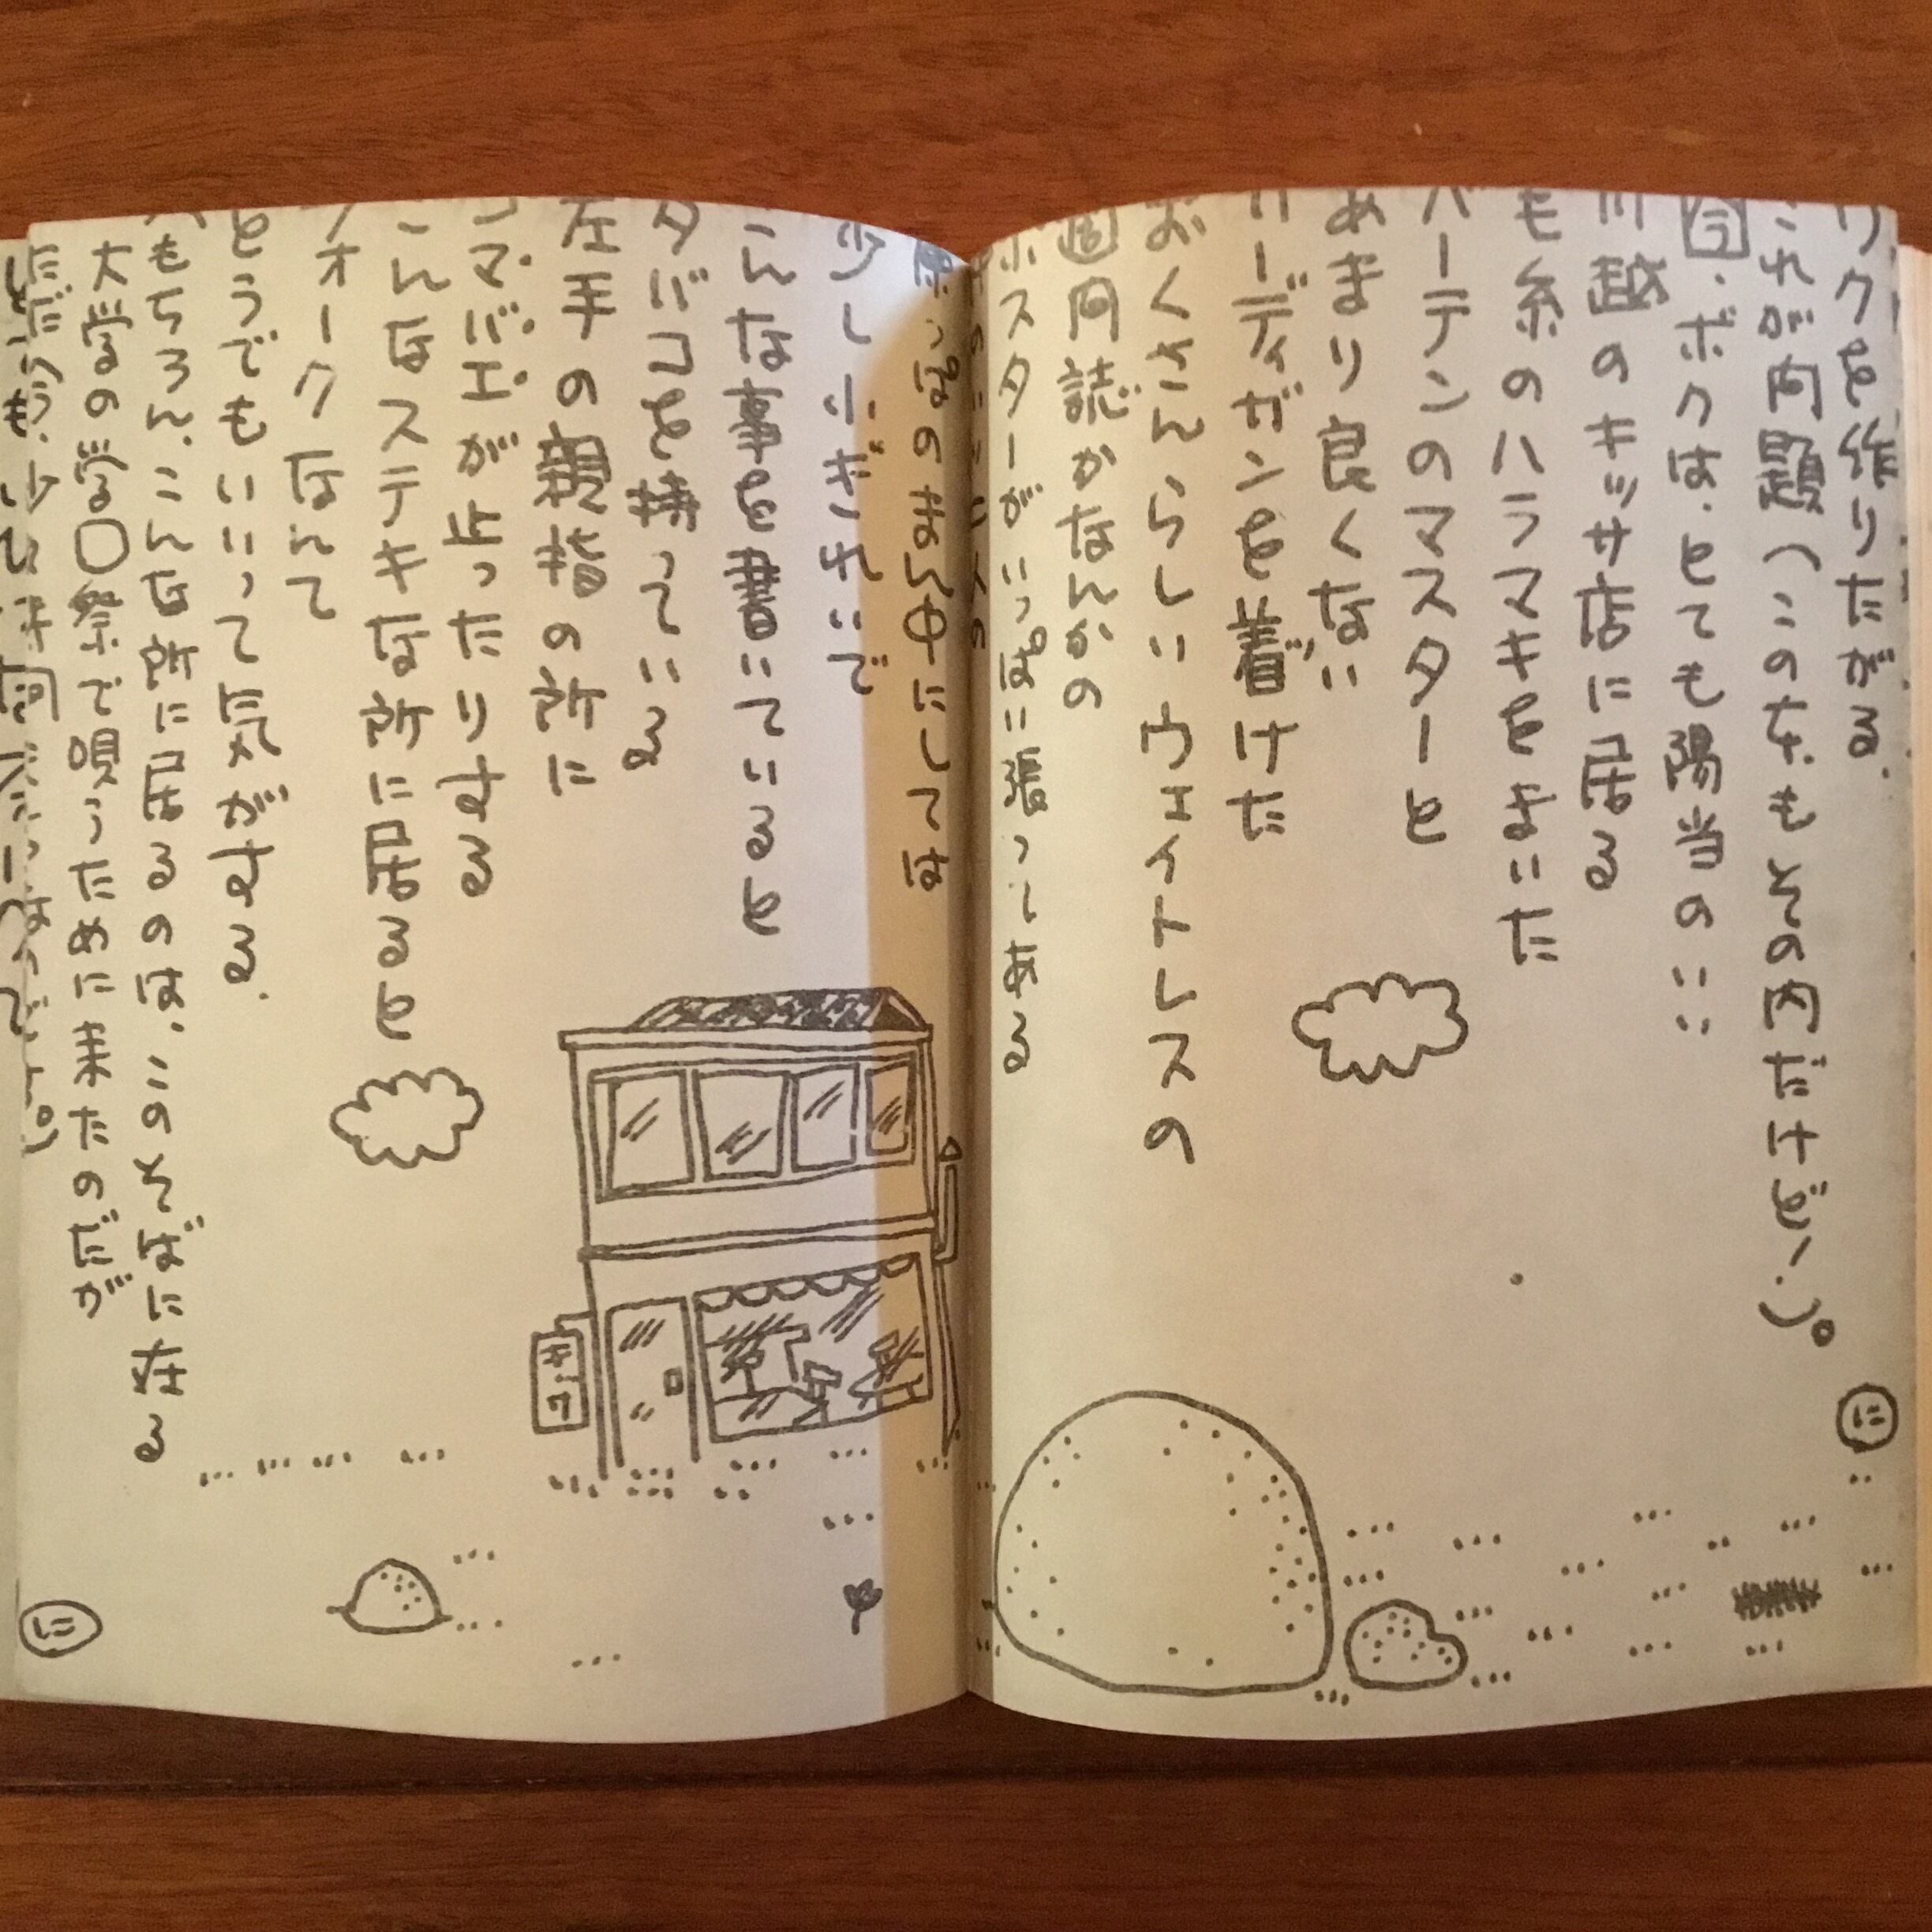 リクを作りたがる.
これが問題(この本もその内だけど!)。
今、ボクは、とても陽当のいい
川越のキッサ店に居る
も糸のハラマキをまいた
バーテンのマスターと
あまり良くない
カーディガンを着けた
おくさんらしいウェイトレスの
週間誌かなんかの
ポスターがいっぱいに張ってある
原っぱのまん中にしては
少し小ぎれいで
こんな事を書いていると
タバコを持っている
左手の親指の所に
コマバエが止ったりする
こんなステキな所に居ると
フォークなんて
どうでもいいって気がする.
もちろん、こんな所に居るのは、このそばに在る
大学の学〇祭で唄うために来たのだが
に
に
キッサ